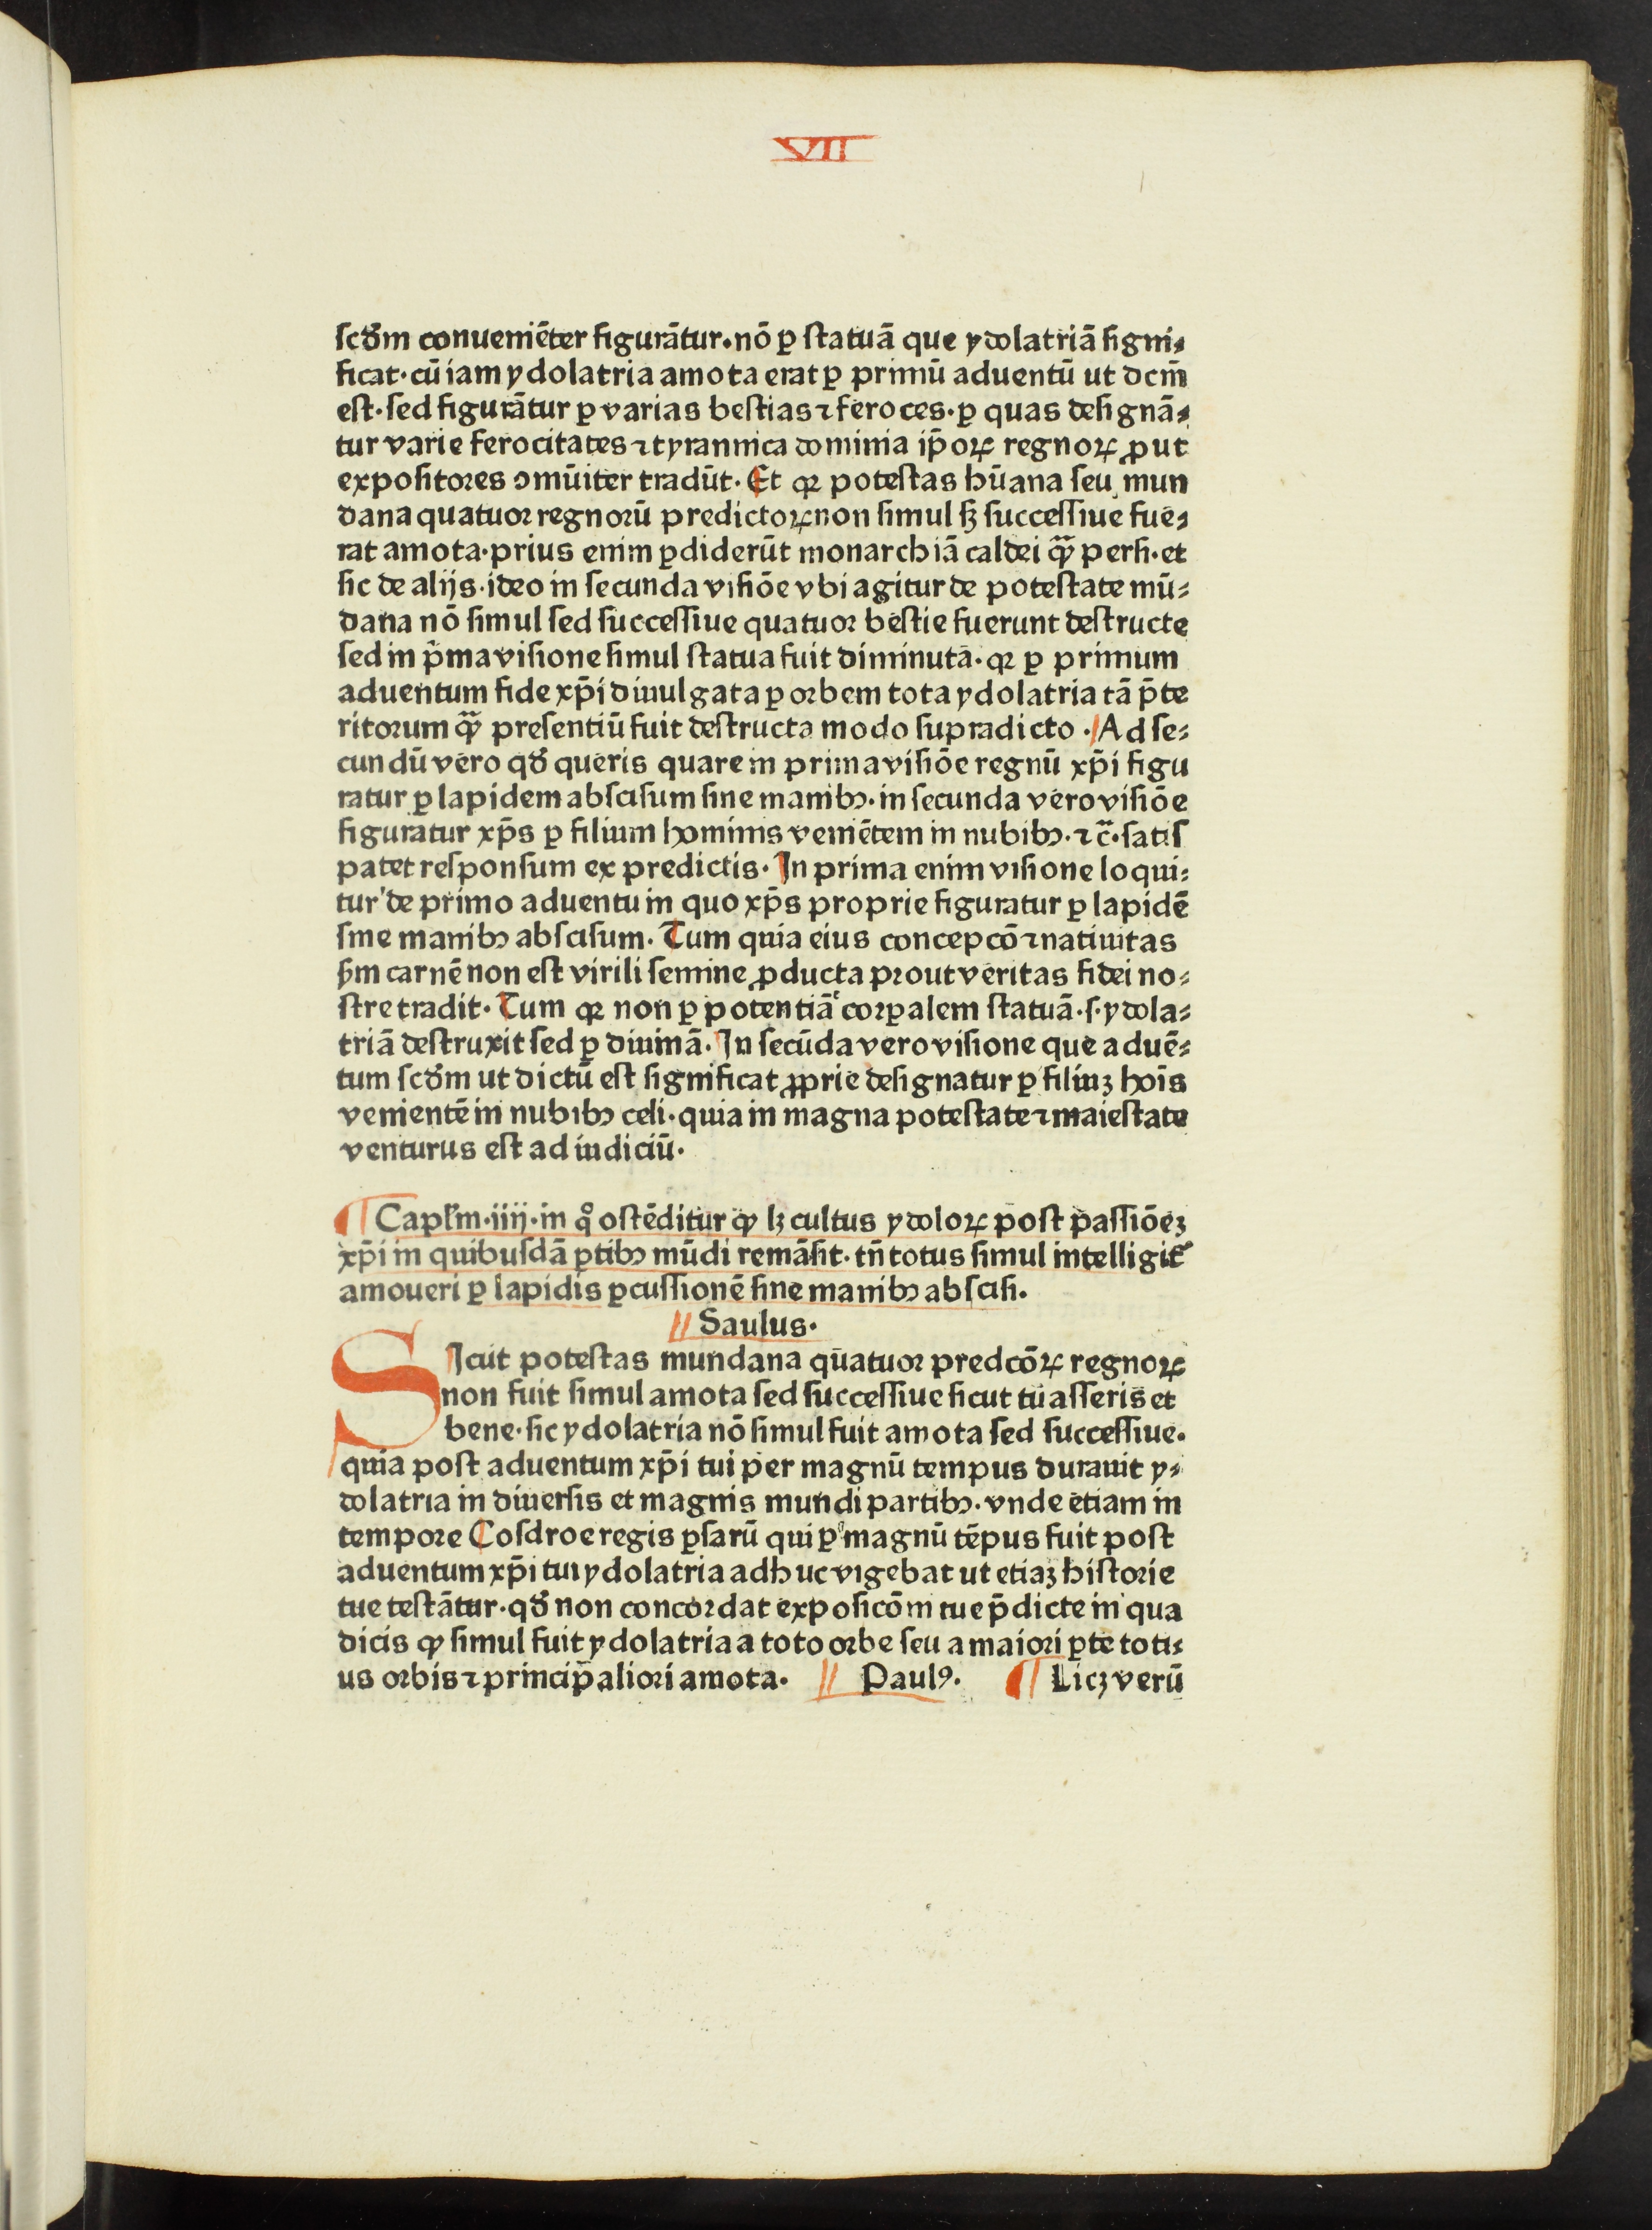 VII
ſcꝺ̃m conueniēter figurātur·nō ꝑ ſtatuā que ydolatriā ſigni⸗
ficat·cū iam ydolatria amota erat ꝑ primū aduentū ut dcm̄
eſt·ſed figurātur ꝑ varias beſtias ⁊ feroces·ꝑ quas deſignā⸗
tur varie ferocitates ⁊ tyrannica dominia ip̄oꝝ regnoꝝ ꝓut
expoſitores ↄmūiter tradūt·Et qꝛ poteſtas hūana ſeu mun
dana quatuor regnorū predictoꝝ non ſimul ſꝫ ſucceſſiue fue⸗
rat amota·prius enim ꝑdiderūt monarchiā caldei ꝙ̃ perſi·et
ſic de alijs·ideo in ſecunda viſiōe vbi agitur de poteſtate mū⸗
dana nō ſimul ſed ſucceſſiue quatuor beſtie fuerunt deſtructe
ſed in p̄ma viſione ſimul ſtatua fuit diminuta·qꝛ ꝑ primum
aduentum fide xp̄i diuulgata ꝑ orbem tota ydolatria tā p̄te
ritorum ꝙ̃ preſentiū fuit deſtructa modo ſupradicto·Ad ſe⸗
cundū vero qꝺ̃ queris quare in prima viſiōe regnū xp̄i figu
ratur ꝑ lapidem abſciſum ſine manibꝫ·in ſecunda vero viſiōe
figuratur xp̄s ꝑ filium hominis veniētem in nubibꝫ·⁊ c̄·ſatiſ
patet reſponſum ex predictis·In prima enim viſione loqui⸗
tur de primo aduentu in quo xp̄s proprie figuratur ꝑ lapidē
ſine manibꝫ abſciſum·Tum quia eius concepcō ⁊ natiuitas
ẜm carnē non eſt virili ſemine ꝓducta prout veritas fidei no⸗
ſtre tradit·Tum qꝛ non ꝑ potentiā corꝑalem ſtatuā·ſ·ydola⸗
triā deſtruxit ſed ꝑ diuinā·In ſecūda vero viſione que aduē⸗
tum ſcꝺ̃m ut dictū eſt ſignificat ꝓprie deſignatur ꝑ filiuꝫ hoīs
venientē in nubibꝫ celi·quia in magna poteſtate ⁊ maieſtate
venturus eſt ad iudiciū·
¶ Capl̄m·iiij·in qͦ oſtēditur ꝙ lꝫ cultus ydoloꝝ poſt paſſiōeꝫ
xp̄i in quibuſdā ꝑtibꝫ mūdi remāſit·tn̄ totus ſimul intelligit̃
amoueri ꝑ lapidis ꝑcuſſionē ſine manibꝫ abſciſi·
// Saulus·
SIcut poteſtas mundana quatuor predcōꝝ regnoꝝ
non fuit ſimul amota ſed ſucceſſiue ſicut tu aſſeris et
bene·ſic ydolatria nō ſimul fuit amota ſed ſucceſſiue·
quia poſt aduentum xp̄i tui per magnū tempus durauit y⸗
dolatria in diuerſis et magnis mundi partibꝫ·vnde etiam in
tempore Coſdroe regis ꝑſarū qui ꝑ magnū tēpus fuit poſt
aduentum xp̄i tui ydolatria adhuc vigebat ut etiaꝫ hiſtorie
tue teſtātur·qꝺ̃ non concordat expoſicōni tue p̄dicte in qua
dicis ꝙ ſimul fuit ydolatria a toto orbe ſeu a maiori ꝑte toti⸗
us orbis ⁊ principaliori amota· // Paulꝰ· ¶ Licꝫ verū